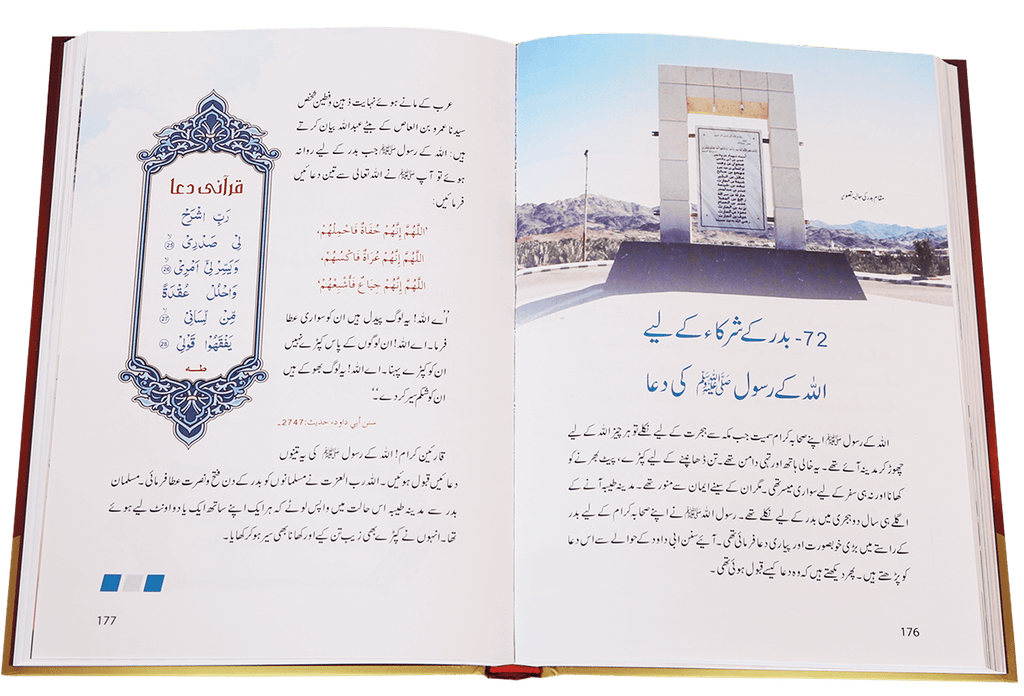 مقام بدر کی حالیہ تصویر
72- بدر کے شرکاء کے لیے
اللہ کے رسول ﷺ کی دعا
اللہ کے رسول ﷺ اپنے صحابہ کرام سمیت جب مکہ سے ہجرت کے لیے نکلے تو ہر چیز اللہ کے لیے
چھوڑ کر مدینہ آئے تھے۔ یہ خالی ہاتھ اور تہی دامن تھے۔ تن ڈھانپنے کے لیے کپڑے، پیٹ بھرنے کو
کھانا اور نہ ہی سفر کے لیے سواری میسر تھی۔ مگر ان کے سینے ایمان سے منور تھے۔ مدینہ طیبہ آنے کے
اگلے ہی سال دو ہجری میں بدر کے لیے نکلے تھے۔ رسول اللہ ﷺ نے اپنے صحابہ کرام کے لیے بدر
کے راستے میں بڑی خوبصورت اور پیاری دعا فرمائی تھی۔ آئیے سنن ابی داود کے حوالے سے اس دعا
کو پڑھتے ہیں۔ پھر دیکھتے ہیں کہ وہ دعا کیسے قبول ہوئی تھی۔
176
عرب کے مانے ہوئے نہایت ذہین وفطین شخص
سیدنا عمرو بن العاص کے بیٹے عبداللہ بیان کرتے
ہیں: اللہ کے رسول ﷺ جب بدر کے لیے روانہ
ہوئے تو آپ ﷺ نے اللہ تعالی سے تین دعائیں
فرمائیں:
'اللَّهُمَّ إِنَّهُمْ حُفَاةٌ فَاحْمِلْهُمْ،
اللَّهُمَّ إِنَّهُمْ عُرَاةٌ فَاكْسُهُمْ،
اللَّهُمَّ إِنَّهُمْ جِيَاعٌ فَأَشْبِعْهُمْ'
''اے اللہ! یہ لوگ پیدل ہیں ان کو سواری عطا
فرما۔ اے اللہ! ان لوگوں کے پاس کپڑے نہیں
ان کو کپڑے پہنا۔ اے اللہ! یہ لوگ بھوکے ہیں
ان کو شکم سیر کر دے۔''
سنن أبي داود، حديث:2747۔
قارئین کرام! اللہ کے رسول ﷺ کی یہ تینوں
دعائیں قبول ہوئیں۔ اللہ رب العزت نے مسلمانوں کو بدر کے دن فتح ونصرت عطا فرمائی۔ مسلمان
بدر سے مدینہ طیبہ اس حالت میں واپس لوٹے کہ ہر ایک اپنے ساتھ ایک یا دو اونٹ لیے ہوئے
تھا۔ انہوں نے کپڑے بھی زیب تن کیے اور کھانا بھی سیر ہو کر کھایا۔
قرآنی دعا
رَبِّ اشْرَحْ
لِيْ صَدْرِيْ ۝25
وَيَسِّرْ لِيْٓ اَمْرِيْ ۝26
وَاحْلُلْ عُقْدَةً
مِّنْ لِّسَانِيْ ۝27
يَفْقَهُوْا قَوْلِيْ ۝28
طه
177